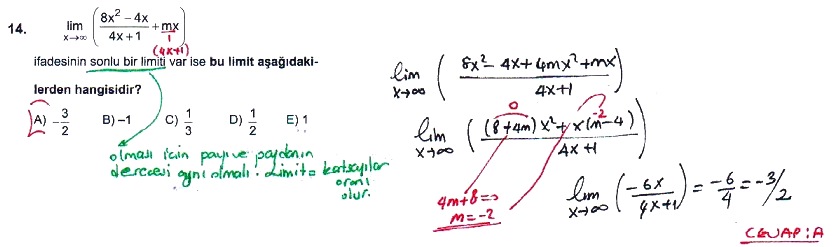 14. lim x→∞ ( (8x² − 4x)/(4x + 1) + mx/1 )
(4x+1)
ifadesinin sonlu bir limiti var ise bu limit aşağıdaki-
lerden hangisidir?
A) −3/2 B) −1 C) 1/3 D) 1/2 E) 1
olması için payı ve paydanın
derecesi aynı olmalı. Limit = katsayılar
oranı
olur.
lim x→∞ ( (8x² − 4x + 4mx² + mx)/(4x+1) )
0 -2
lim x→∞ ( ((8+4m)x² + x(m−4))/(4x+1) )
4m+8=0
m=-2
lim x→∞ ( −6x/(4x+1) ) = −6/4 = −3/2
CEVAP : A